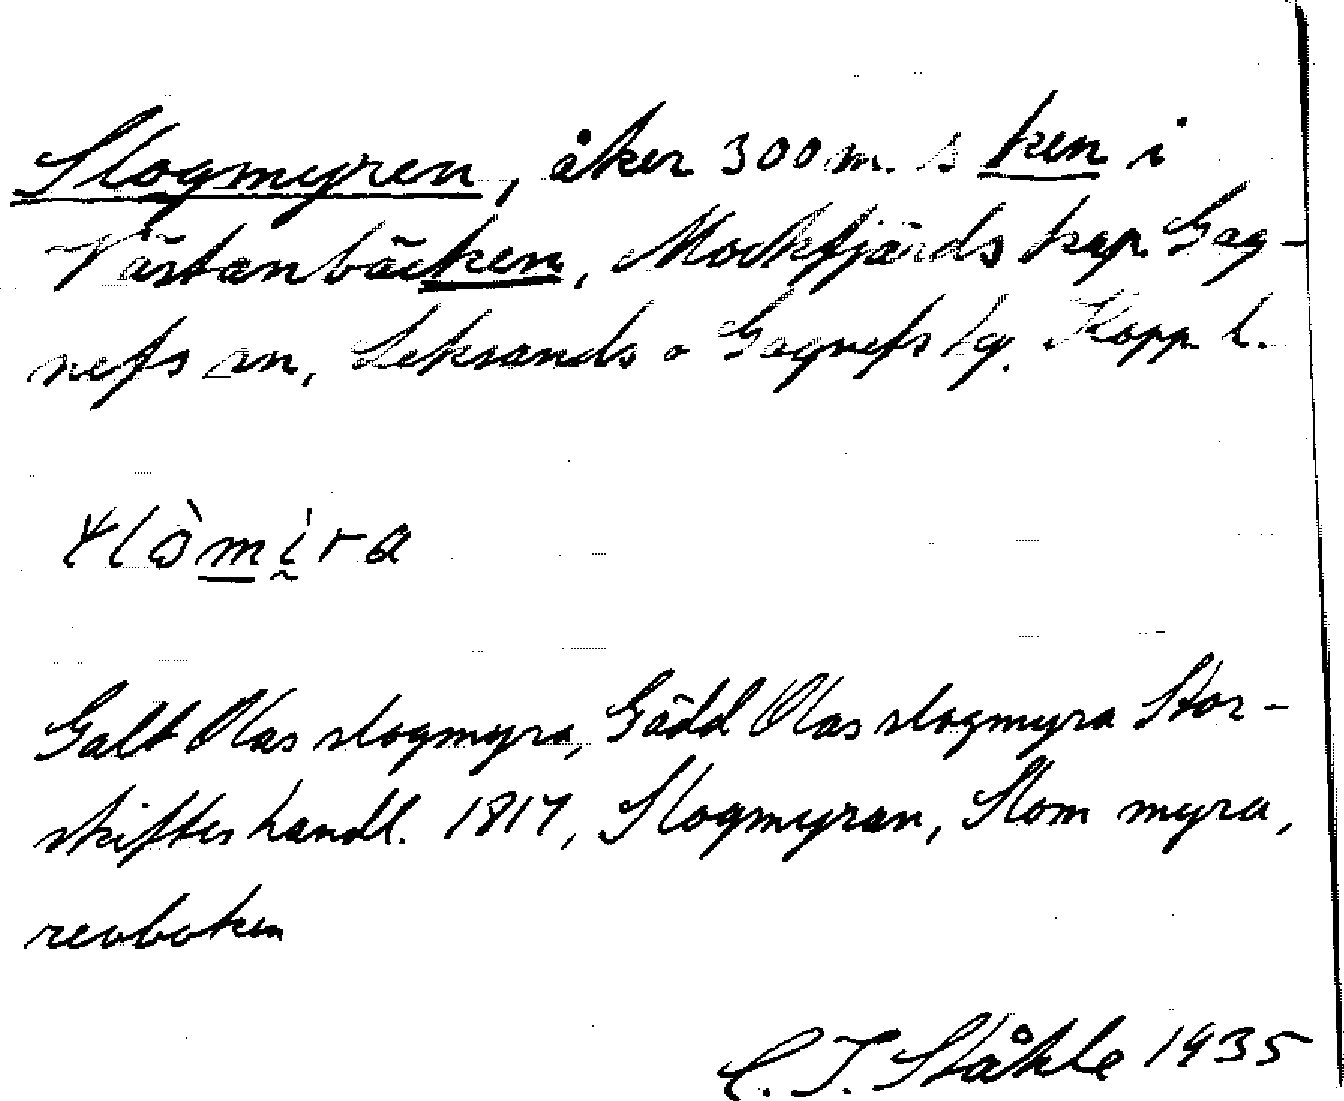 Slogmyren, åker 300 m. s ken i
Västanbäcken, Mockfjärds kap. Gag-
nefs sn, Leksands o Gagnefs tg. Kopp. l.
slòmira
Galt Olas slogmyra, Gädd Olas slogmyra Stor-
skifteshandl. 1817, Slogmyran, Slom myra,
revboken
C. I. Ståhle 1935